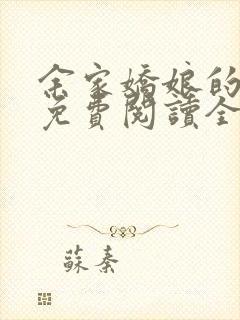 余家嬌娘的
免費閱讀全
蘇秦